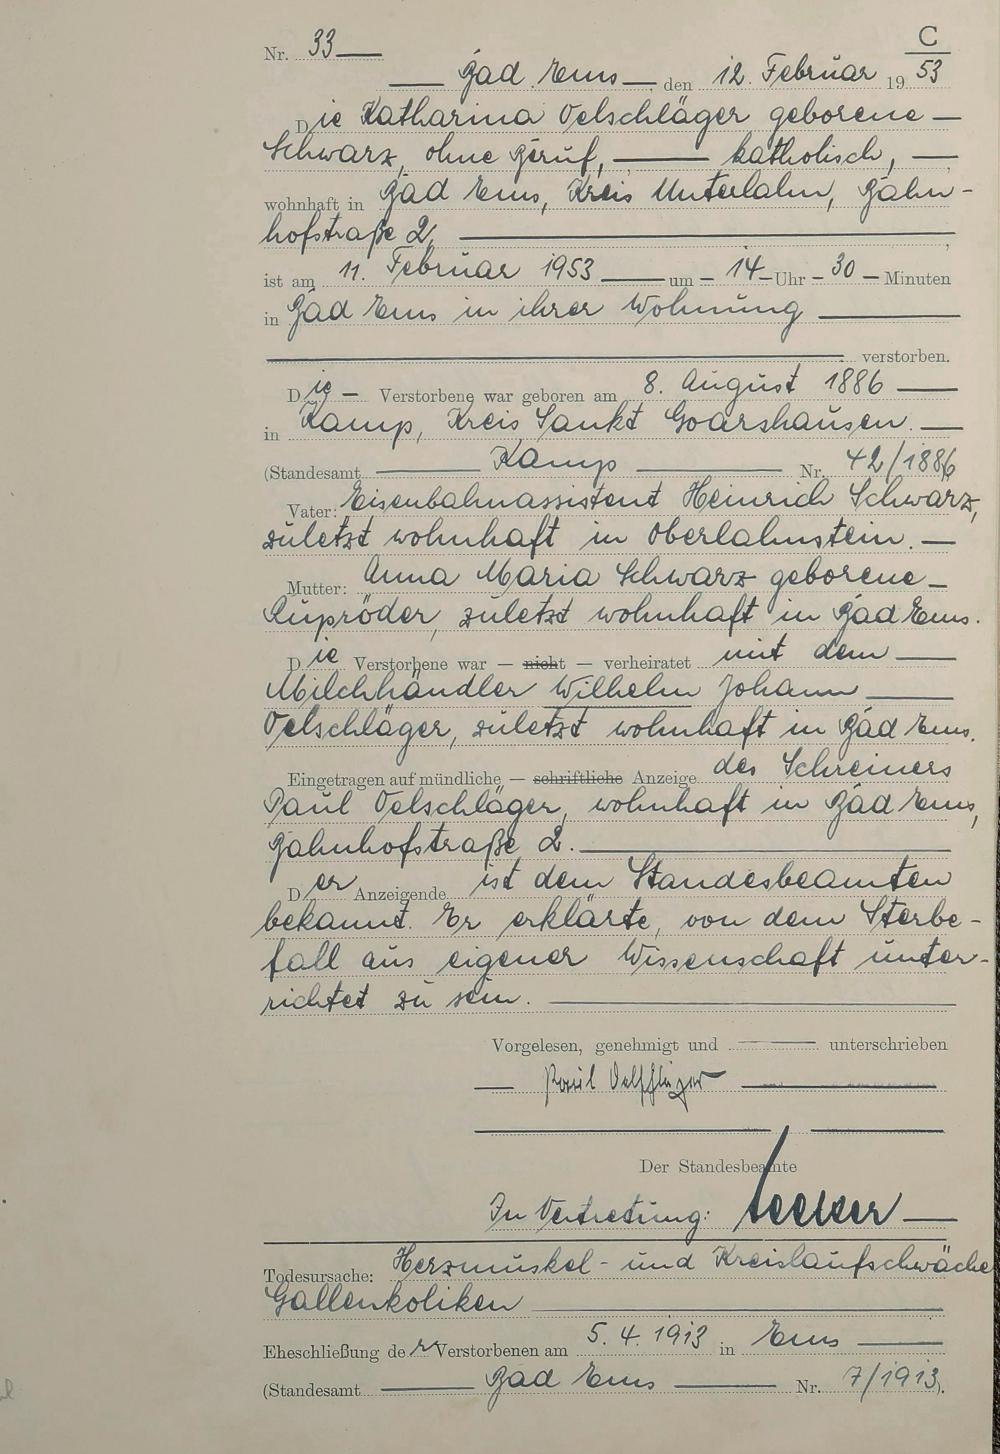 C
Nr. 33
Bad Ems, den 12. Februar 19 53
Die Katharina Oelschläger geborene
Schwarz, ohne Beruf, katholisch,
wohnhaft in Bad Ems, Kreis Unterlahn, Bahn-
hofstraße 2,
ist am 11. Februar 1953 um 14 Uhr 30 Minuten
in Bad Ems in ihrer Wohnung
verstorben.
Die Verstorbene war geboren am 8. August 1886
in Kamp, Kreis Sankt Goarshausen.
(Standesamt Kamp Nr. 42/1886
Vater: Eisenbahnassistent Heinrich Schwarz,
zuletzt wohnhaft in Oberlahnstein.
Mutter: Anna Maria Schwarz geborene
Ruproder, zuletzt wohnhaft in Bad Ems.
Die Verstorbene war — nicht — verheiratet mit dem
Milchhändler Wilhelm Johann
Oelschläger, zuletzt wohnhaft in Bad Ems.
Eingetragen auf mündliche — schriftliche Anzeige des Schreiners
Paul Oelschläger, wohnhaft in Bad Ems,
Bahnhofstraße 2.
Der Anzeigende ist dem Standesbeamten
bekannt. Er erklärte, von dem Sterbe-
fall aus eigener Wissenschaft unter-
richtet zu sein.
Vorgelesen, genehmigt und unterschrieben
Paul Oelschläger
Der Standesbeamte
In Vertretung:
Todesursache: Herzmuskel- und Kreislaufschwäche
Gallenkoliken
Eheschließung der Verstorbenen am 5. 4. 1913 in Ems
(Standesamt Bad Ems Nr. 7/1913).